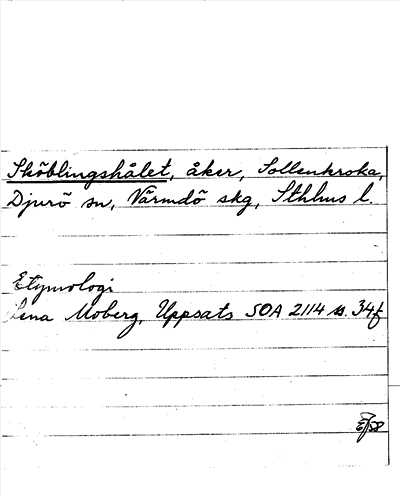 Sköblingshålet, åker, Sollenkroka,
Djurö sn, Värmdö skg, Sthlms l.
Etymologi
Lena Moberg, Uppsats SOA 2114 s. 34f